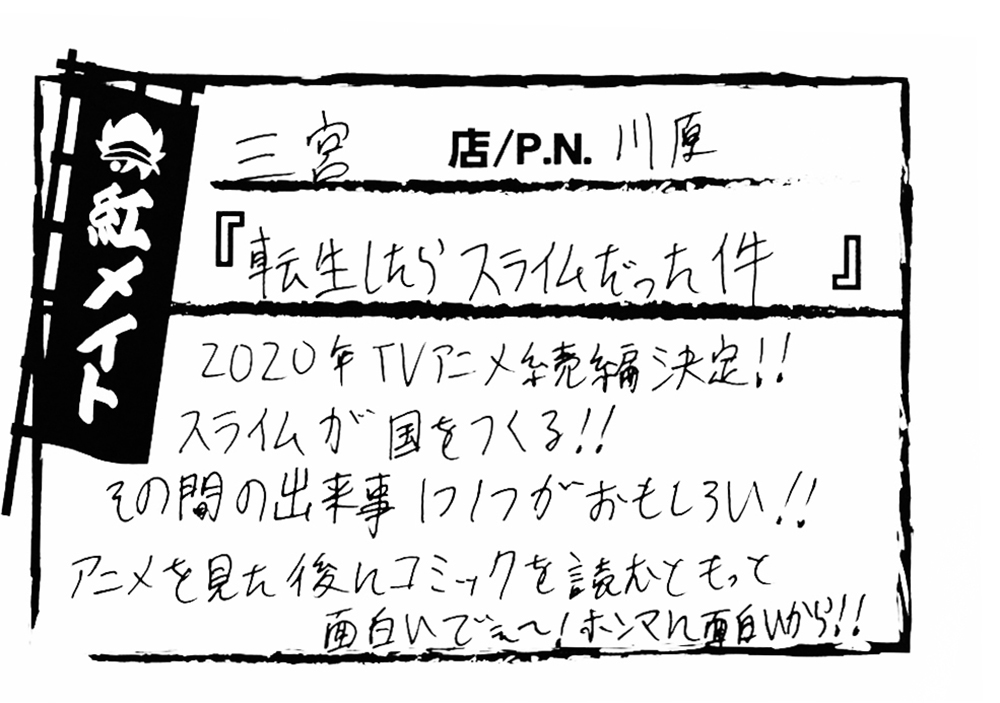 紅メイト
三宮 店/P.N. 川原
『転生したらスライムだった件』
2020年TVアニメ続編決定!!
スライムが国をつくる!!
その間の出来事1つ1つがおもしろい!!
アニメを見た後にコミックを読むともっと
面白いでぇ〜!ホンマに面白いから!!